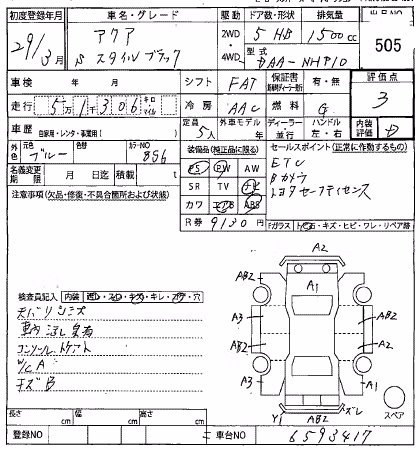 初度登録年月 車名・グレード 駆動 ドア数・形状 排気量 出品NO
29/3 アクア 2WD 5 HB 1500cc 505
S スタイルブラック 4WD 型式 DAA-NHP10
車検 年 月 シフト FAT 保証書 有・無 評価点
走行 5万1千306 キロ マイル 冷房 AAC 燃料 G 3
車歴 自家用・レンタ・事業用( ) 定員 5人 外車モデル 年 ディーラー 並行 ハンドル 左・右 内装評価 D
外色 元色 ブルー 色替 カラーNO 8S6 装備品(純正品に限る) セールスポイント(正常に作動するもの)
名義変更期限 月 日迄 積載 t PS PW AW ETC
注意事項(欠品・修復・不具合箇所および状態) SR TV ナビ Bカメラ
カワ エアB ABS トヨタセーフティセンス
R券 9130円 Fガラス トビ石・キズ・ヒビ・ワレ・リペア跡
A2
AB2 A1 AB2
A3 AB2
AB2 A2
A3 A1
Y1 AB2 ズレ スペア
検査員記入 内装 キレ 穴
天バリシミ
車内 臭有
コンソール
W/C A
キズ B
長さ cm 幅 cm 高さ cm
登録NO 車台NO 6593417